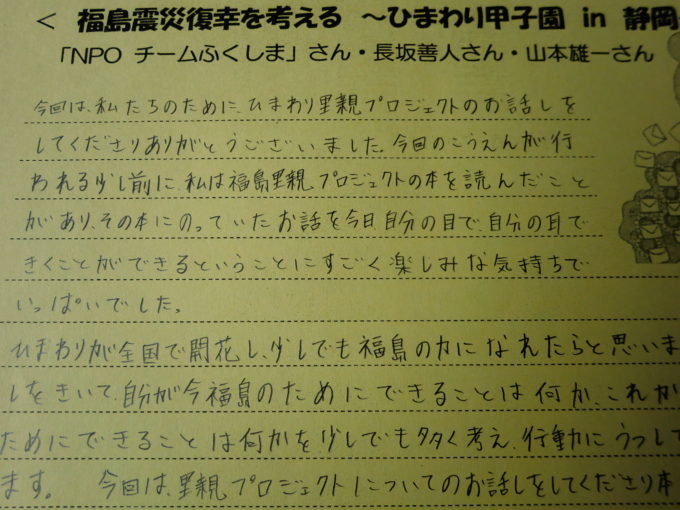 < 福島震災復幸を考える ～ひまわり甲子園 in 静岡
「NPO チームふくしま」さん・長坂善人さん・山本雄一さん
今回は、私たちのために、ひまわり里親プロジェクトのお話しを
してくださりありがとうございました。今回のこうえんが行
われる少し前に、私は福島里親プロジェクトの本を読んだこと
があり、その本にのっていたお話を今日自分の目で、自分の耳で
きくことができるということにすごく楽しみな気持ちで
いっぱいでした。
ひまわりが全国で開花し、少しでも福島の力になれたらと思いま
しをきいて、自分が今福島のためにできることは何か、これか
ためにできることは何かを、少しでも多く考え、行動にうつして
ます。 今回は、里親プロジェクトについてのお話しをしてくださり本